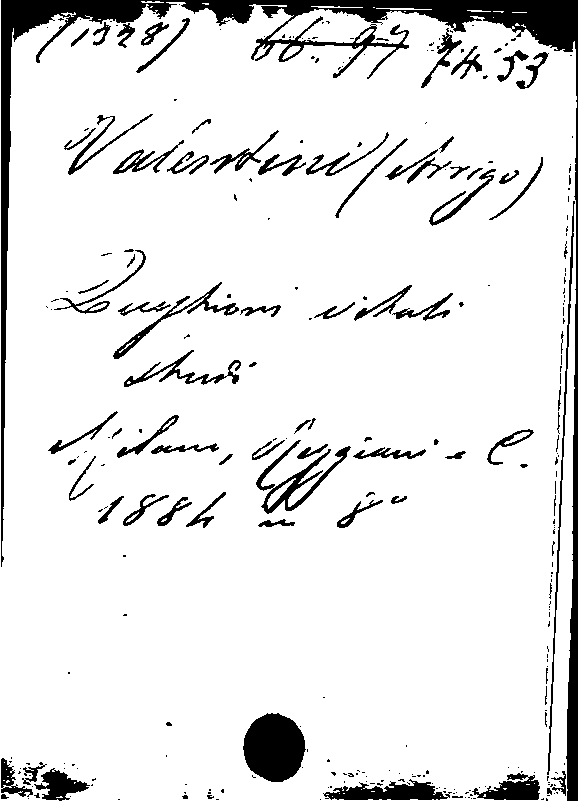 (1328) 66. 97 74.53
Valentini (Arrigo)
Questioni vitali
studi
Milano, Reggiani e C.
1884 in 8°